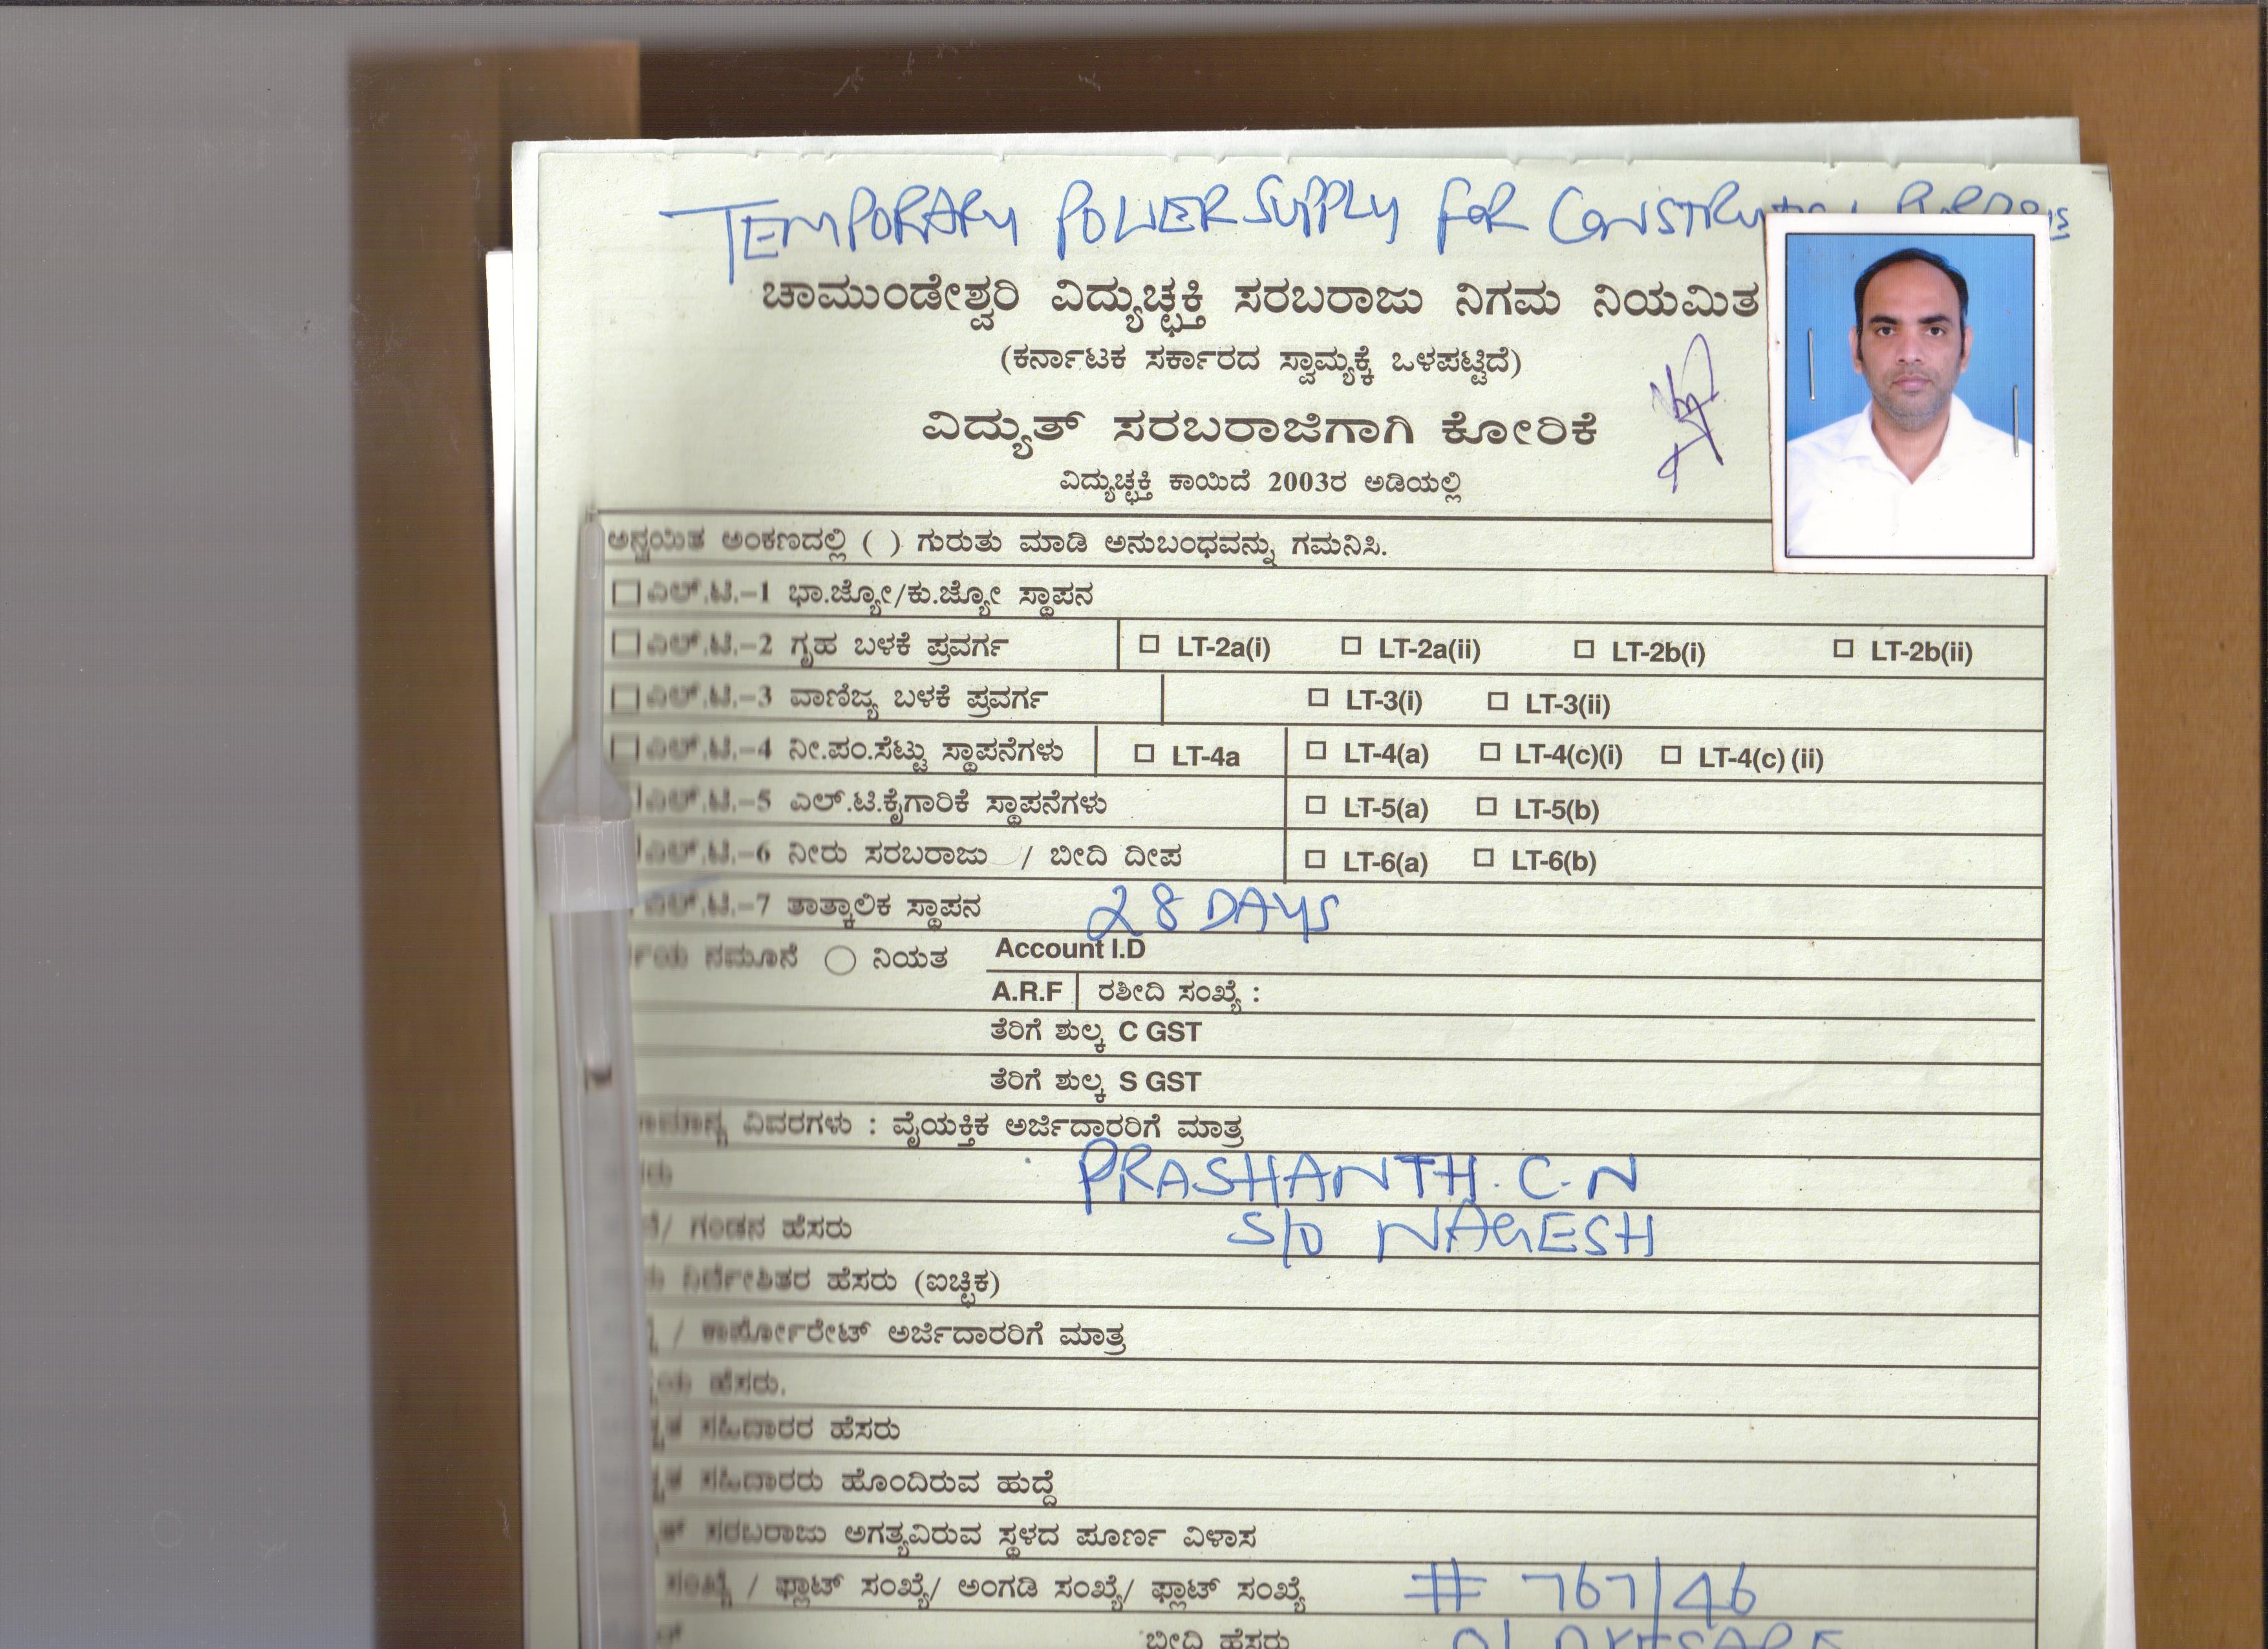 TEMPORARY POWER SUPPLY FOR
ಚಾಮುಂಡೇಶ್ವರಿ ವಿದ್ಯುಚ್ಛಕ್ತಿ ಸರಬರಾಜು ನಿಗಮ ನಿಯಮಿತ
(ಕರ್ನಾಟಕ ಸರ್ಕಾರದ ಸ್ವಾಮ್ಯಕ್ಕೆ ಒಳಪಟ್ಟಿದೆ)
ವಿದ್ಯುತ್ ಸರಬರಾಜಿಗಾಗಿ ಕೋರಿಕೆ
ವಿದ್ಯುಚ್ಛಕ್ತಿ ಕಾಯಿದೆ 2003ರ ಅಡಿಯಲ್ಲಿ
ಅನ್ವಯಿತ ಅಂಕಣದಲ್ಲಿ ( ) ಗುರುತು ಮಾಡಿ ಅನುಬಂಧವನ್ನು ಗಮನಿಸಿ.
ಎಲ್.ಟಿ.–1 ಭಾ.ಜ್ಯೋ/ಕು.ಜ್ಯೋ ಸ್ಥಾಪನ
ಎಲ್.ಟಿ.–2 ಗೃಹ ಬಳಕೆ ಪ್ರವರ್ಗ LT-2a(i) LT-2a(ii) LT-2b(i) LT-2b(ii)
ಎಲ್.ಟಿ.–3 ವಾಣಿಜ್ಯ ಬಳಕೆ ಪ್ರವರ್ಗ LT-3(i) LT-3(ii)
ಎಲ್.ಟಿ.–4 ನೀ.ಪಂ.ಸೆಟ್ಟು ಸ್ಥಾಪನೆಗಳು LT-4a LT-4(a) LT-4(c)(i) LT-4(c) (ii)
ಎಲ್.ಟಿ.–5 ಎಲ್.ಟಿ.ಕೈಗಾರಿಕೆ ಸ್ಥಾಪನೆಗಳು LT-5(a) LT-5(b)
ಎಲ್.ಟಿ.–6 ನೀರು ಸರಬರಾಜು / ಬೀದಿ ದೀಪ LT-6(a) LT-6(b)
ಎಲ್.ಟಿ.–7 ತಾತ್ಕಾಲಿಕ ಸ್ಥಾಪನ 28 DAYS
ನಮೂನೆ ನಿಯತ Account I.D
A.R.F ರಶೀದಿ ಸಂಖ್ಯೆ :
ತೆರಿಗೆ ಶುಲ್ಕ C GST
ತೆರಿಗೆ ಶುಲ್ಕ S GST
ವಿವರಗಳು : ವೈಯಕ್ತಿಕ ಅರ್ಜಿದಾರರಿಗೆ ಮಾತ್ರ
PRASHANTH. C. N
/ ಗಂಡನ ಹೆಸರು S/O NAGESH
ನಿರ್ದೇಶಿತರ ಹೆಸರು (ಐಚ್ಛಿಕ)
/ ಕಾರ್ಪೋರೇಟ್ ಅರ್ಜಿದಾರರಿಗೆ ಮಾತ್ರ
ಹೆಸರು.
ಸಹಿದಾರರ ಹೆಸರು
ಸಹಿದಾರರು ಹೊಂದಿರುವ ಹುದ್ದೆ
ಸರಬರಾಜು ಅಗತ್ಯವಿರುವ ಸ್ಥಳದ ಪೂರ್ಣ ವಿಳಾಸ
ಸಂಖ್ಯೆ / ಫ್ಲಾಟ್ ಸಂಖ್ಯೆ/ ಅಂಗಡಿ ಸಂಖ್ಯೆ/ ಫ್ಲಾಟ್ ಸಂಖ್ಯೆ # 767/46
ಬೀದಿ ಹೆಸರು